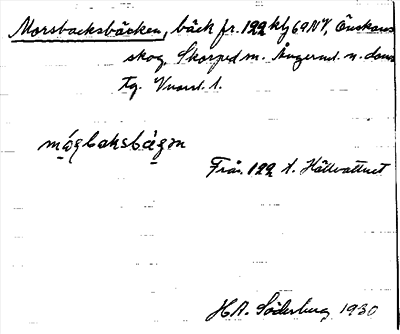 Morsbacksbäcken, bäck fr. 122 klf 69 NV, Önskans
skog, Skorped sn. Ångerml. n. doms
tg. Vuonl. 1.
mósbaksbä̀gən
Från 122 t. Hällvattnet
H.A. Söderberg 1930